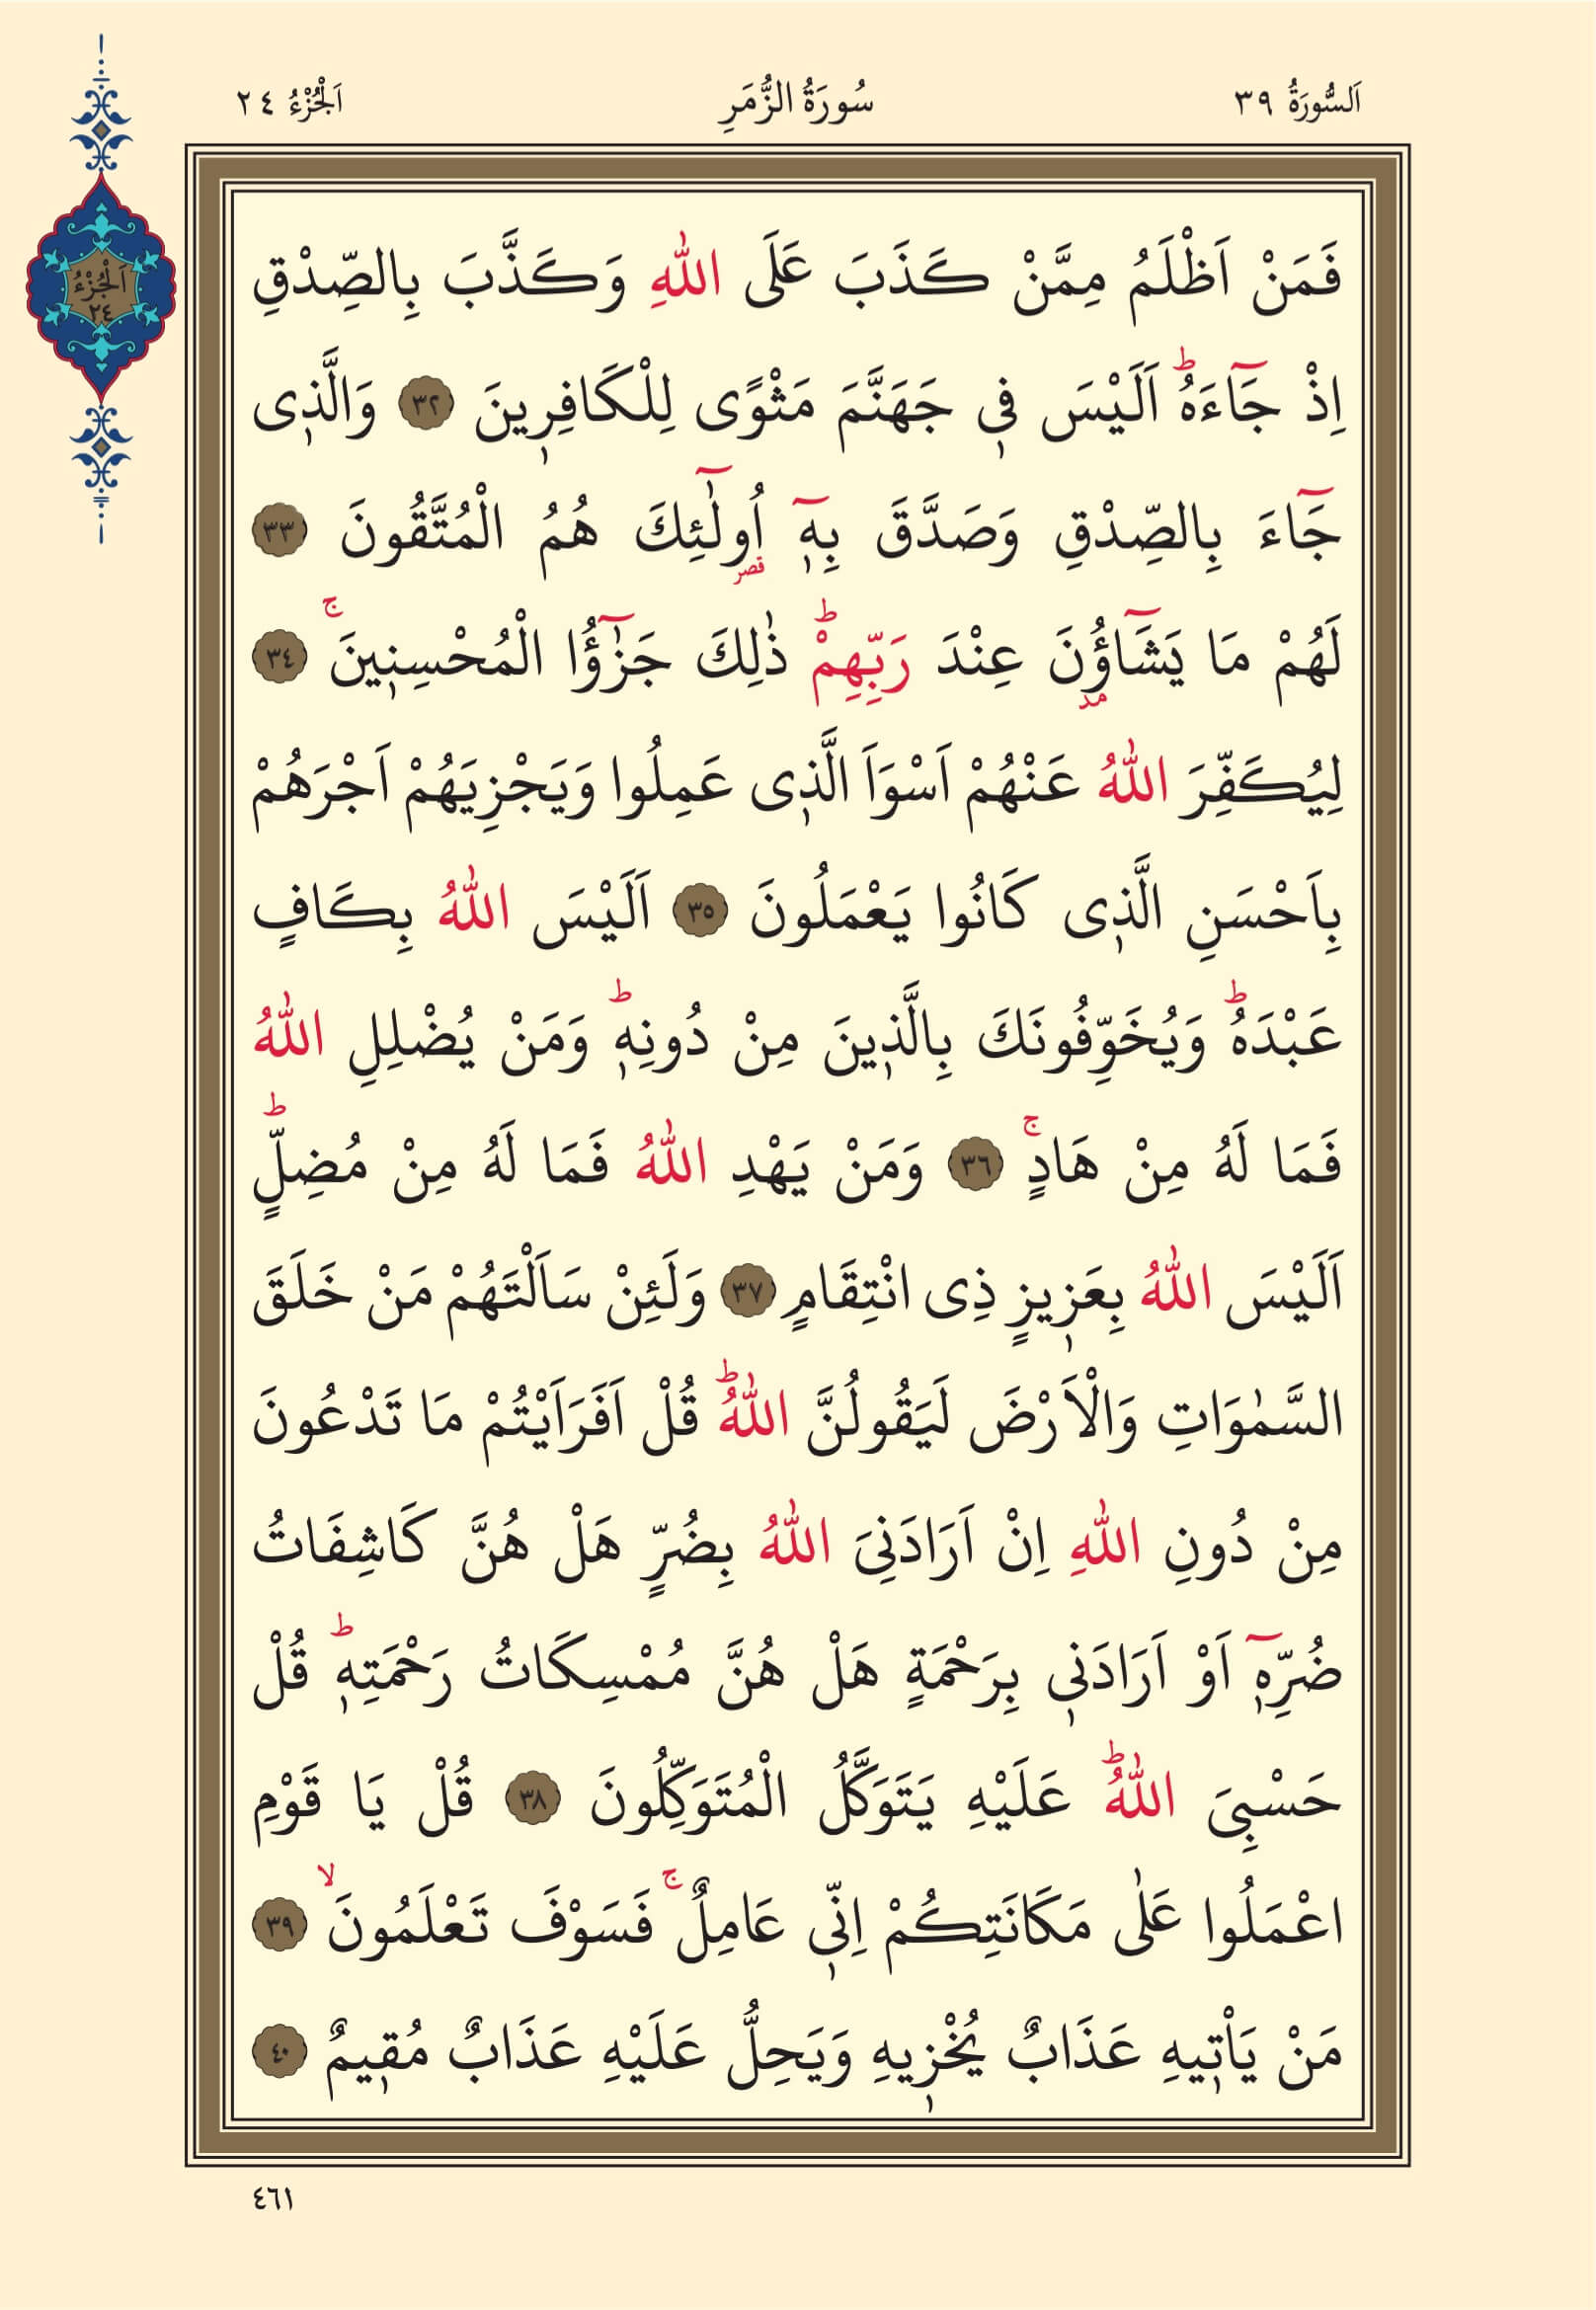 اَلسُّورَةُ ٣٩ سُورَةُ الزُّمَرِ اَلْجُزْءُ ٢٤
اَلْجُزْءُ
٢٤
فَمَنْ اَظْلَمُ مِمَّنْ كَذَبَ عَلَى اللّٰهِ وَكَذَّبَ بِالصِّدْقِ
اِذْ جَٓاءَهُۜ اَلَيْسَ ف۪ي جَهَنَّمَ مَثْوًى لِلْكَافِر۪ينَ ٣٢ وَالَّذ۪ى
جَٓاءَ بِالصِّدْقِ وَصَدَّقَ بِه۪ٓ اُو۬لٰٓئِكَ هُمُ الْمُتَّقُونَ ٣٣
لَهُمْ مَا يَشَٓاؤُ۫نَ عِنْدَ رَبِّهِمْۜ ذٰلِكَ جَزٰٓؤُا الْمُحْسِن۪ينَۚ ٣٤
لِيُكَفِّرَ اللّٰهُ عَنْهُمْ اَسْوَاَ الَّذ۪ى عَمِلُوا وَيَجْزِيَهُمْ اَجْرَهُمْ
بِاَحْسَنِ الَّذ۪ى كَانُوا يَعْمَلُونَ ٣٥ اَلَيْسَ اللّٰهُ بِكَافٍ
عَبْدَهُۜ وَيُخَوِّفُونَكَ بِالَّذ۪ينَ مِنْ دُونِه۪ۜ وَمَنْ يُضْلِلِ اللّٰهُ
فَمَا لَهُ مِنْ هَادٍۚ ٣٦ وَمَنْ يَهْدِ اللّٰهُ فَمَا لَهُ مِنْ مُضِلٍّۜ
اَلَيْسَ اللّٰهُ بِعَز۪يزٍ ذِى انْتِقَامٍ ٣٧ وَلَئِنْ سَاَلْتَهُمْ مَنْ خَلَقَ
السَّمٰوَاتِ وَالْاَرْضَ لَيَقُولُنَّ اللّٰهُۜ قُلْ اَفَرَاَيْتُمْ مَا تَدْعُونَ
مِنْ دُونِ اللّٰهِ اِنْ اَرَادَنِىَ اللّٰهُ بِضُرٍّ هَلْ هُنَّ كَاشِفَاتُ
ضُرِّه۪ٓ اَوْ اَرَادَن۪ي بِرَحْمَةٍ هَلْ هُنَّ مُمْسِكَاتُ رَحْمَتِه۪ۜ قُلْ
حَسْبِىَ اللّٰهُۜ عَلَيْهِ يَتَوَكَّلُ الْمُتَوَكِّلُونَ ٣٨ قُلْ يَا قَوْمِ
اعْمَلُوا عَلٰى مَكَانَتِكُمْ اِنّ۪ي عَامِلٌۚ فَسَوْفَ تَعْلَمُونَۙ ٣٩
مَنْ يَاْت۪يهِ عَذَابٌ يُخْز۪يهِ وَيَحِلُّ عَلَيْهِ عَذَابٌ مُق۪يمٌ ٤٠
٤٦١